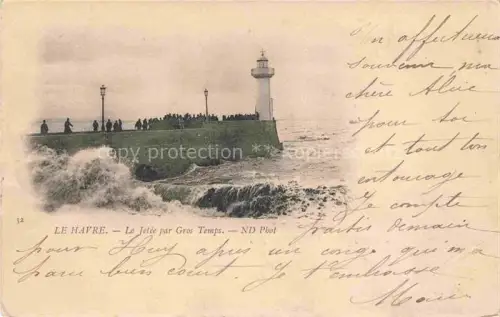 Un affectueux
souvenir ma
chère Alice
pour toi
et tout ton
entourage
Je compte
partir demain
pour Huy après un congé qui m'a
paru bien court. Je t'embrasse
Marie
52
LE HAVRE. — La Jetée par Gros Temps. — ND Phot
copyright protection